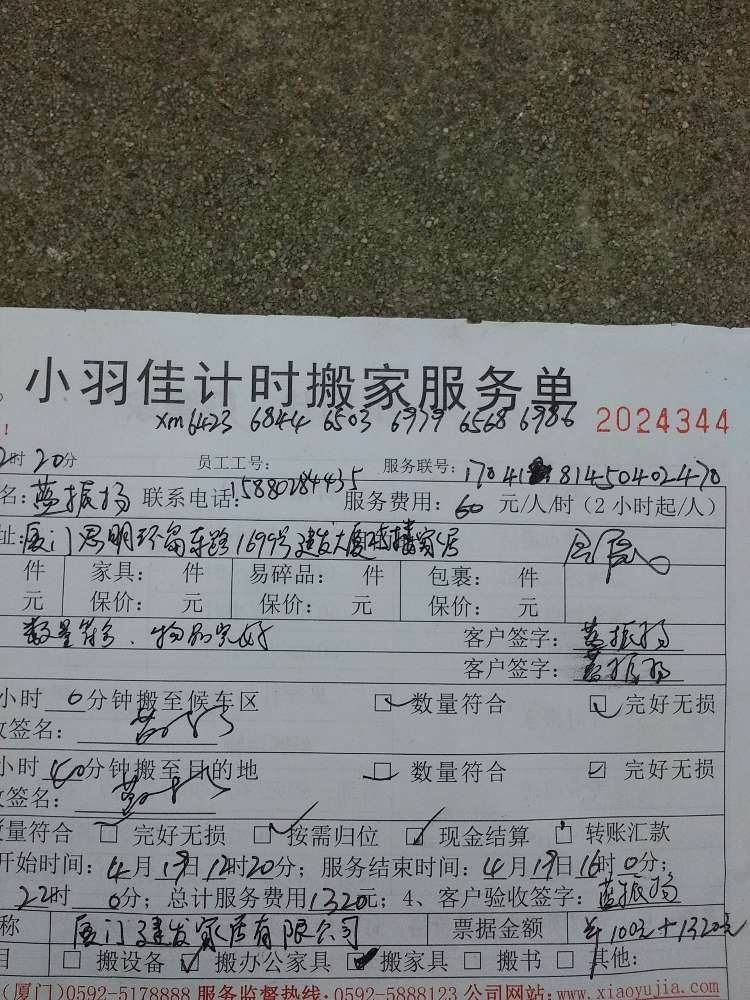 小羽佳计时搬家服务单
! xm6423 6844 6503 6979 6568 6986 2024344
2时20分 员工工号: 服务联号:17041 81450402470
名:蓝振扬 联系电话:15880284435 服务费用:60元/人/时(2小时起/人)
址:厦门思明环岛东路1699号建发大厦
件 家具: 件 易碎品: 件 包裹: 件
元 保价: 元 保价: 元 保价: 元
数量符合、物品完好 客户签字:蓝振扬
客户签字:蓝振扬
小时 0分钟搬至候车区 数量符合 完好无损
收签名:
小时40分钟搬至目的地 数量符合 完好无损
收签名:
数量符合 完好无损 按需归位 现金结算 转账汇款
开始时间:4月19日12时20分;服务结束时间:4月19日16时0分;
22时0分;总计服务费用1320元;4、客户验收签字:蓝振扬
称 厦门建发家居有限公司 票据金额 100元+1320元
目 搬设备 搬办公家具 搬家具 搬书 其他:
(厦门)0592-5178888 服务监督热线:0592-5888123 公司网站:www.xiaoyujia.com